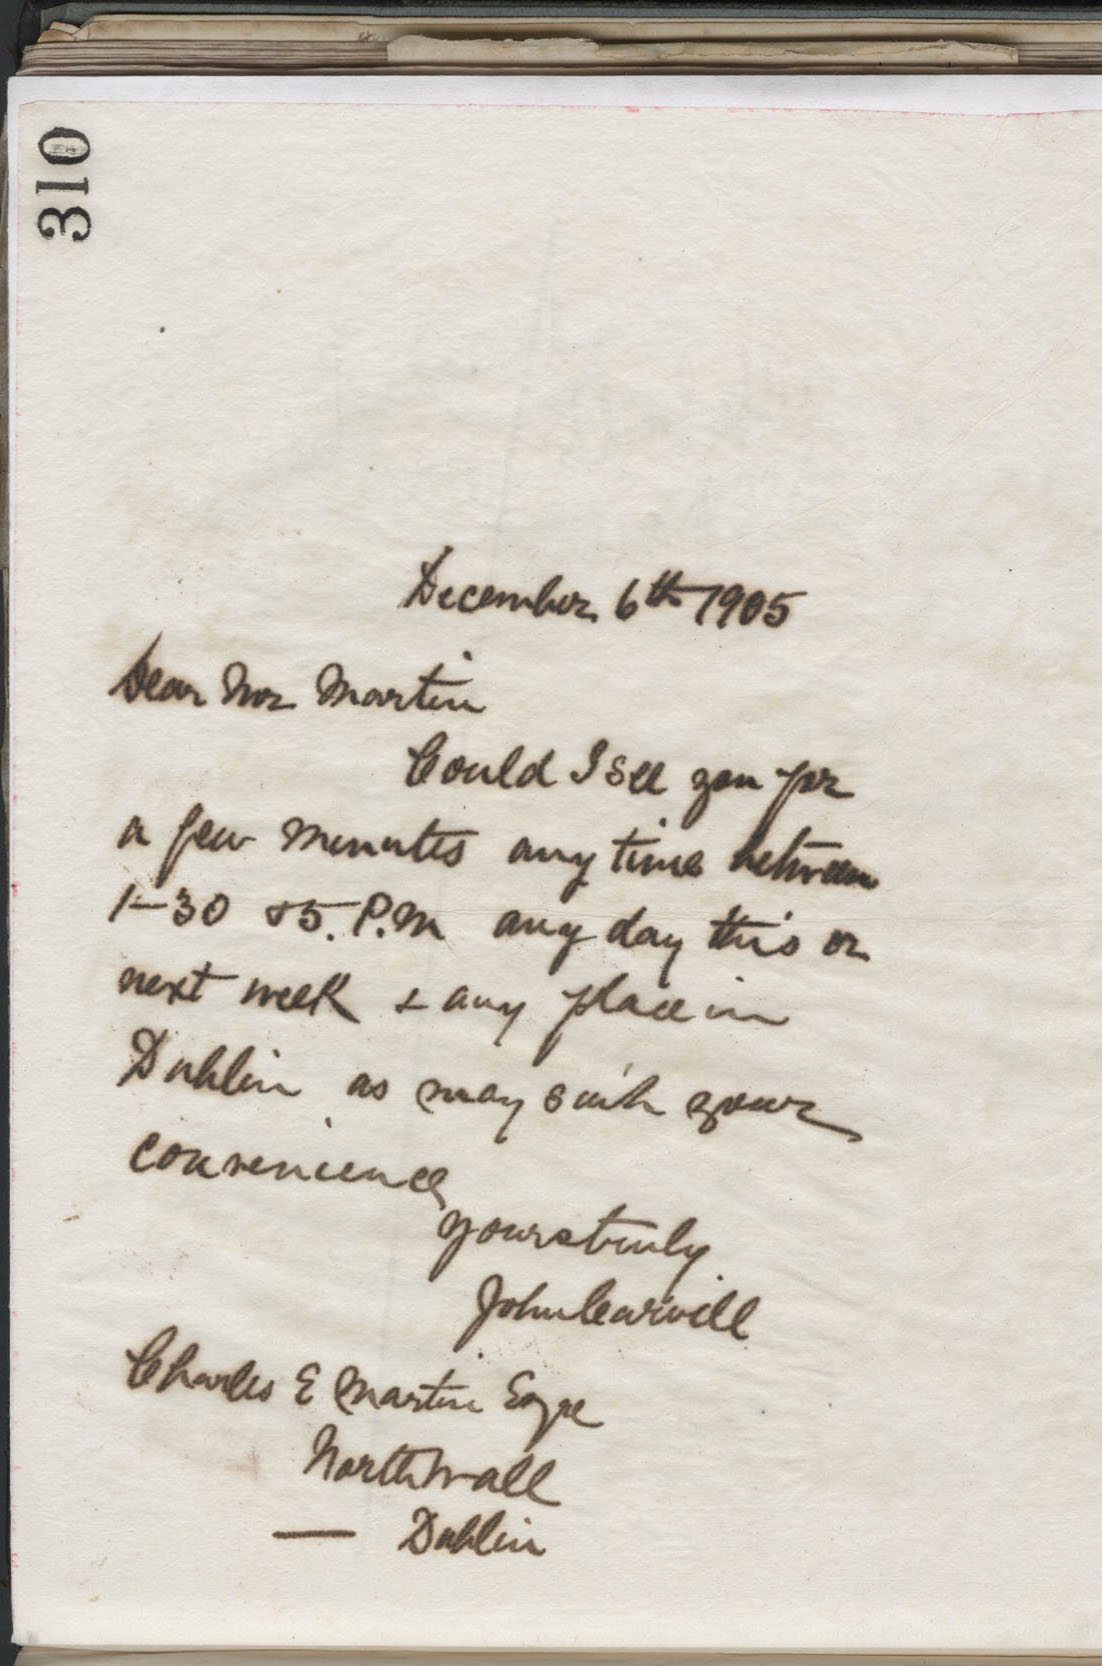 310
December 6th 1905
Dear Mr Martin
Could I see you for
a few minutes any time between
1-30 & 5. P.M any day this or
next week & any place in
Dublin as may suit your
convenience
Yours truly
John Carvill
Charles E Martin Esqre
North Wall
— Dublin